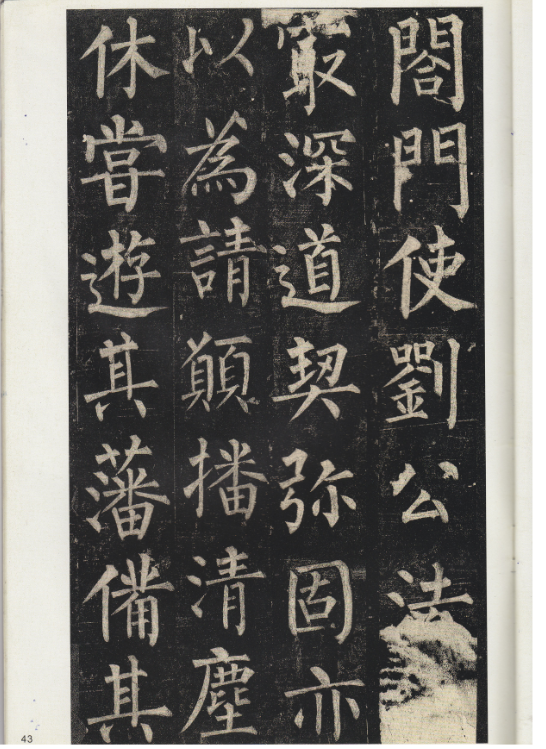 閤門使劉公法
最深道契弥固亦
以為請願播清塵
休甞遊其藩備其
43